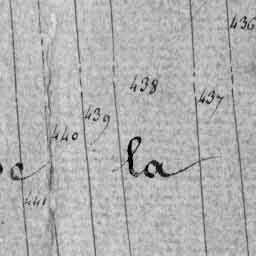 436
438
437
439
440
la
441